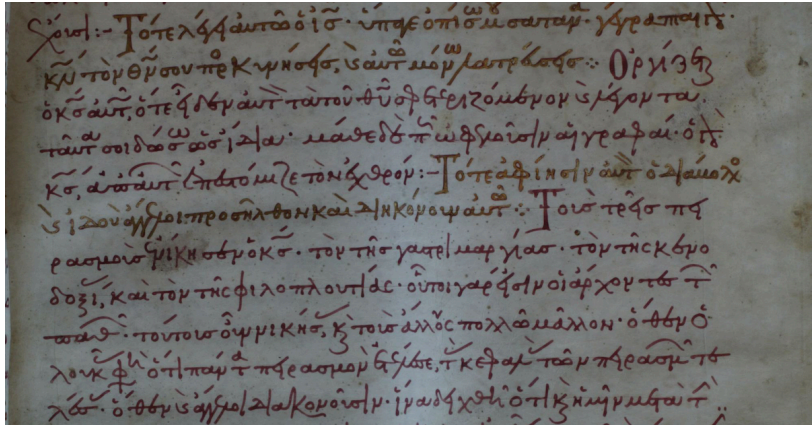 χθῆς:- Τότε λέγει αὐτῷ ὁ ἰς· ὕπαγε ὀπίσω μου σατανᾶ· γέγραπται γὰρ·
κν τὸν θν σου προσκυνήσεις, κ αὐτῷ μόνῳ λατρεύσεις:· Ὀργίζε
ὁ κς αὐτ, ὅτε εἶδεν αὐτ τὰ τοῦ θυ σφετεριζόμενον κ λέγοντα.
ταῦτα σοι δώσω ὡς ἴδια· μάθε δὲ π ὠφέλιμοί εἰσιν αἱ γραφαί· ὅτι
κς, ἀπ αὐτ ἐπεστόμιζε τὸν ἐχθρόν:- Τότε ἀφίησιν αὐτ ὁ διάβολο
κ ἰδοὺ ἄγγελοι προσῆλθον καὶ διηκόνουν αὐτῷ:· Τοὺς τρεῖς πει
ρασμοὺς ἐνίκησεν ὁ κς· τὸν τῆς γαστριμαργίας· τὸν τῆς κενο
δοξί, καὶ τὸν τῆς φιλοπλουτίας· οὗτοι γάρ εἰσιν οἱ ἄρχοντες τ
παθ· τούτους οὖν νικήσ, κ τοὺς ἄλλους πολλῶ μᾶλλον· ὅθεν ὁ
λουκ φη ὅτι πάντα πειρασμὸν ἐτέλεσε, τ κεφαλ τῶν πειρασμ τε
λέσ· ὅθεν κ ἄγγελοι διακονοῦσιν· ἵνα δειχθῆ ὅτι κ ἡμῖν μετὰ τ